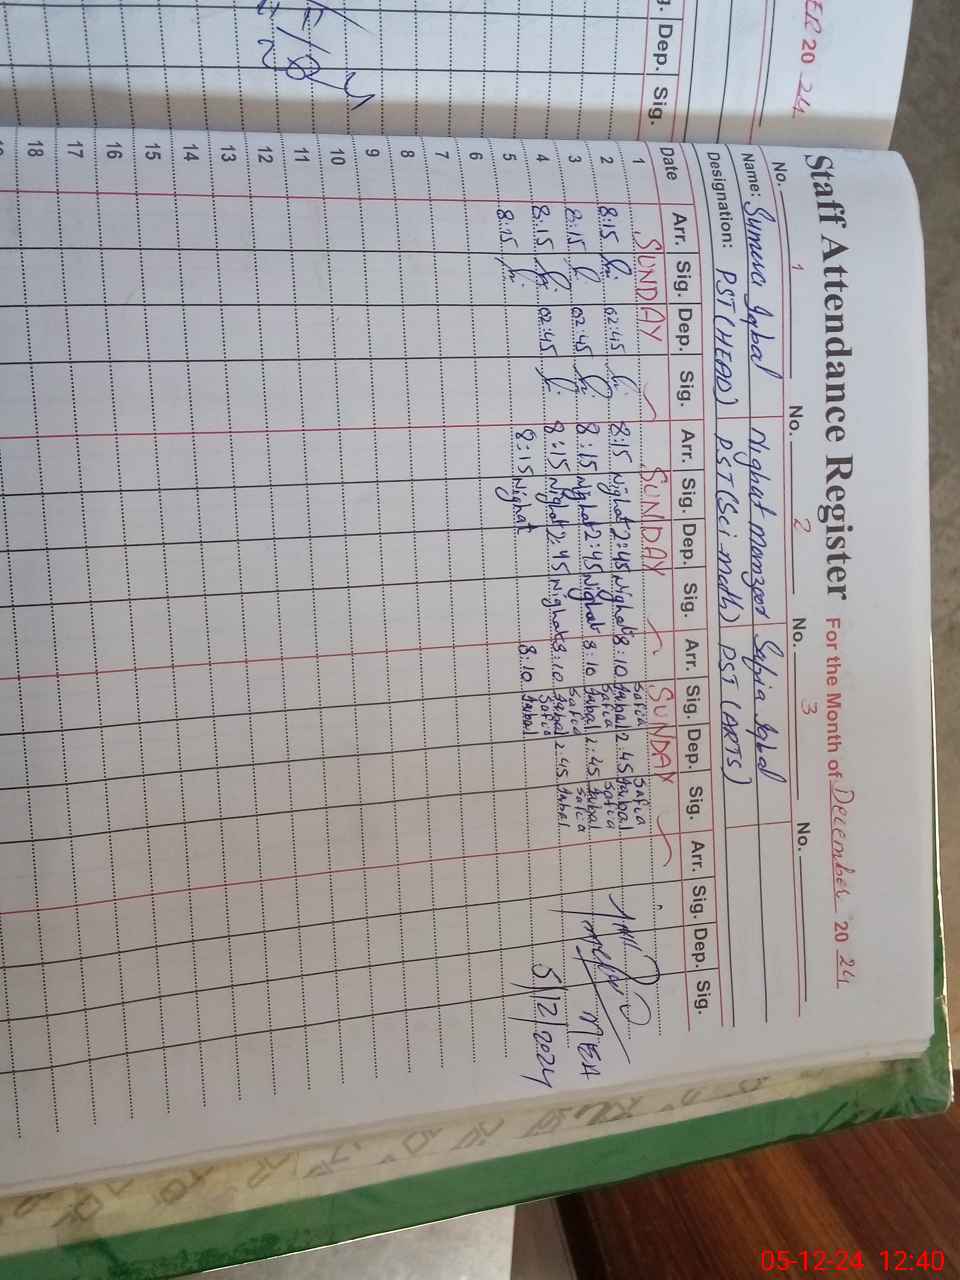 ER 20 24
g. Dep. Sig.
Staff Attendance Register For the Month of December 20 24
No. 1 No. 2 No. 3 No.
Name: Sumera Iqbal Nighat Safia Iqbal
Designation: PST (HEAD) PST (Sci math) PST (ARTS)
Date Arr. Sig. Dep. Sig. Arr. Sig. Dep. Sig. Arr. Sig. Dep. Sig. Arr. Sig. Dep. Sig.
1 SUNDAY SUNDAY SUNDAY
2 8:15 02:45 8:15 Nighat 2:45 Nighat 8:10 Safia Iqbal 2:45 Safia Iqbal
3 8:15 02:45 8:15 Nighat 2:45 Nighat 8:10 Safia Iqbal 2:45 Safia Iqbal
4 8:15 02:45 8:15 Nighat 2:45 Nighat 8:10 Safia Iqbal 2:45 Safia Iqbal
5 8:15 8:15 Nighat 8:10 Safia Iqbal
MEA
5/12/2024
6
7
8
9
10
11
12
13
14
15
16
17
18
19
05-12-24 12:40